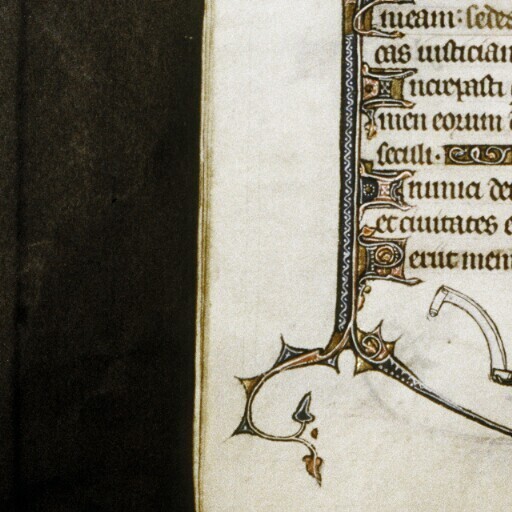 meam: sedes
cas iusticiam
Increpasti
men eorum
seculi.
Inimici de
et ciuitates
Perut mem